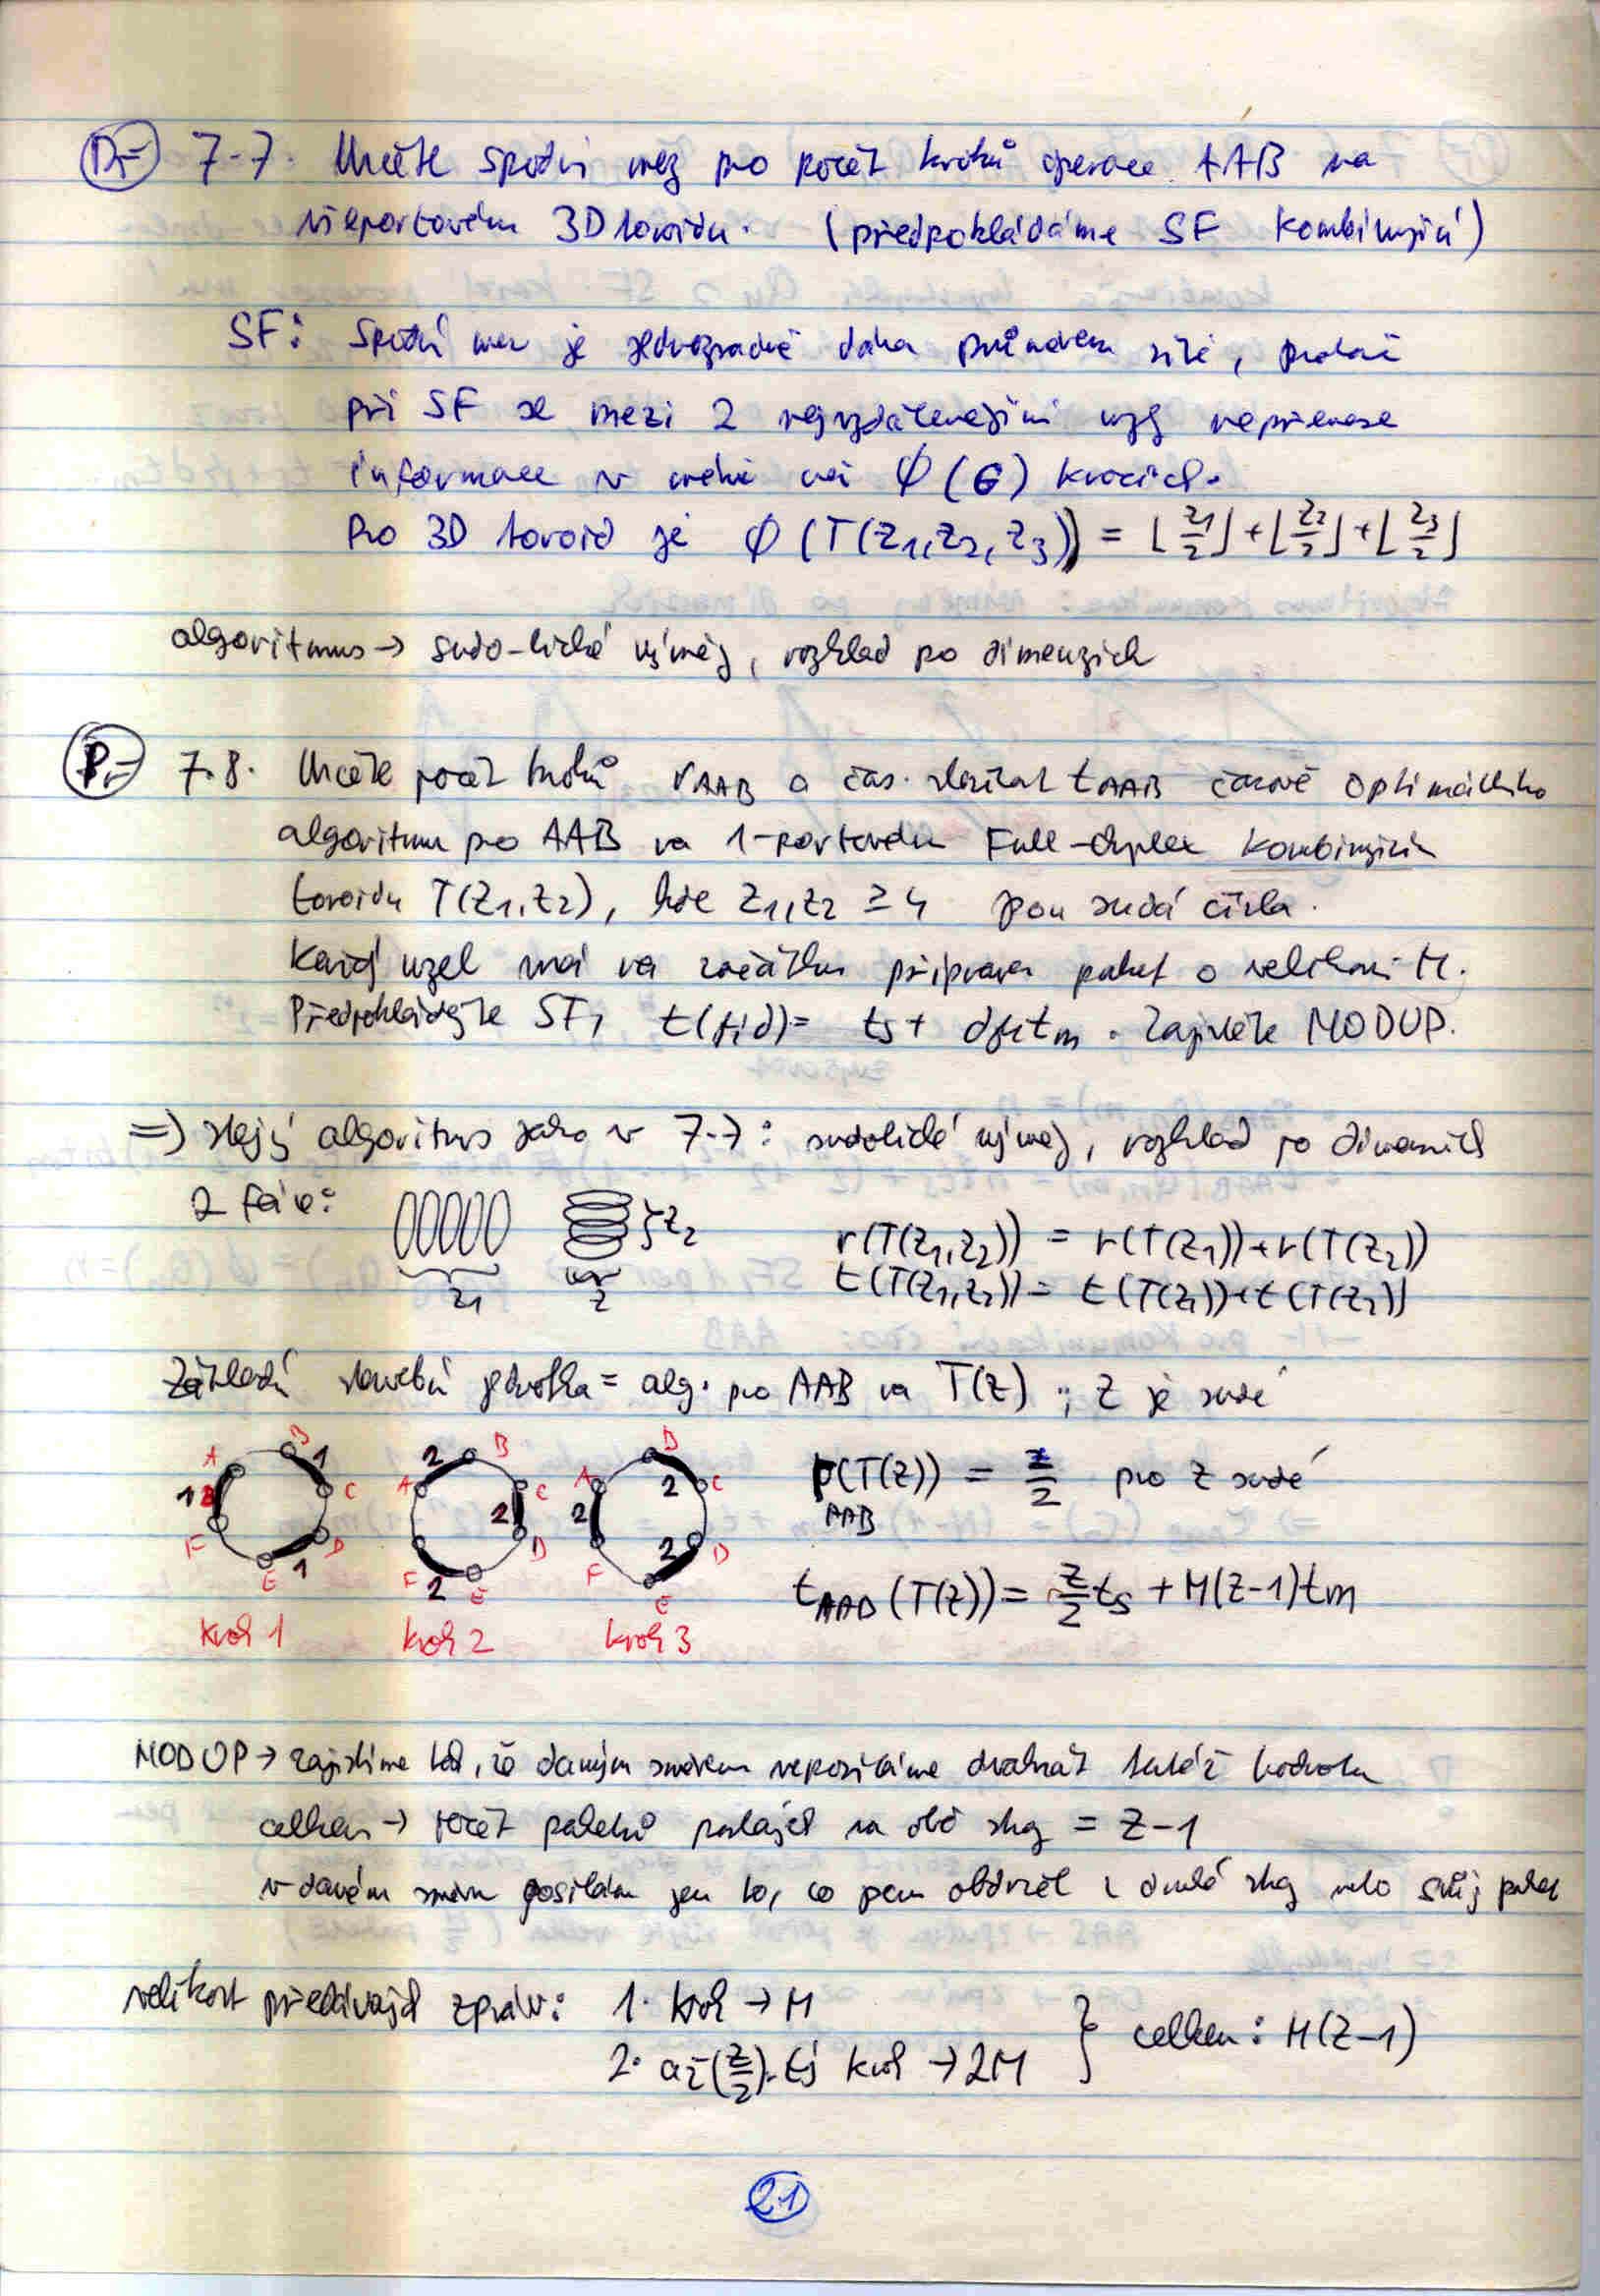 Př 7-7. Určete spodní mez pro počet kroků operace AAB na
všeportovém 3D toroidu. (předpokládáme SF kombinující)
SF: Spodní mez je jednoznačně dána průměrem sítě, protože
při SF se mezi 2 nejvzdálenějšími uzly nepřenese
informace v méně než φ(G) krocích.
Pro 3D toroid je φ(T(z₁,z₂,z₃)) = ⌊z₁/2⌋+⌊z₂/2⌋+⌊z₃/2⌋
algoritmus → sudo-liché výměny, rozklad po dimenzích
Př 7.8. Určete počet kroků r_AAB a čas. složitost t_AAB časově optimálního
algoritmu pro AAB na 1-portovém Full-duplex kombinujícím
toroidu T(z₁,z₂), kde z₁,z₂ ≥ 4 jsou sudá čísla.
Každý uzel má na začátku připraven paket o velikosti M.
Předpokládejte SF, t( ,d)= ts + d tm. Zajistěte MODUP.
⇒ stejný algoritmus jako v 7-7: sudoliché výměny, rozklad po dimenzích
2 fáze: z₁ z }z₂ r(T(z₁,z₂)) = r(T(z₁))+r(T(z₂))
t(T(z₁,z₂)) = t(T(z₁))+t(T(z₂))
Základní stavební jednotka = alg. pro AAB na T(z) ; z je sudé
A B C D E F 1 1 1 A B C D E F 2 2 2 A B C D E F 2 2 2
krok 1 krok 2 krok 3
r_AAB(T(z)) = z/2 pro z sudé
t_AAB(T(z)) = z/2 ts + M(z-1)tm
MODUP → zajistíme tak, že daným směrem neposíláme dvakrát tutéž hodnotu
celkem → počet paketů poslaných na obě strany = z-1
v daném směru posílám jen to, co jsem obdržel z druhé strany nebo svůj paket
velikost předávaných zpráv: 1. krok → M
2. až (z/2)-tý krok → 2M } celkem: M(z-1)
21